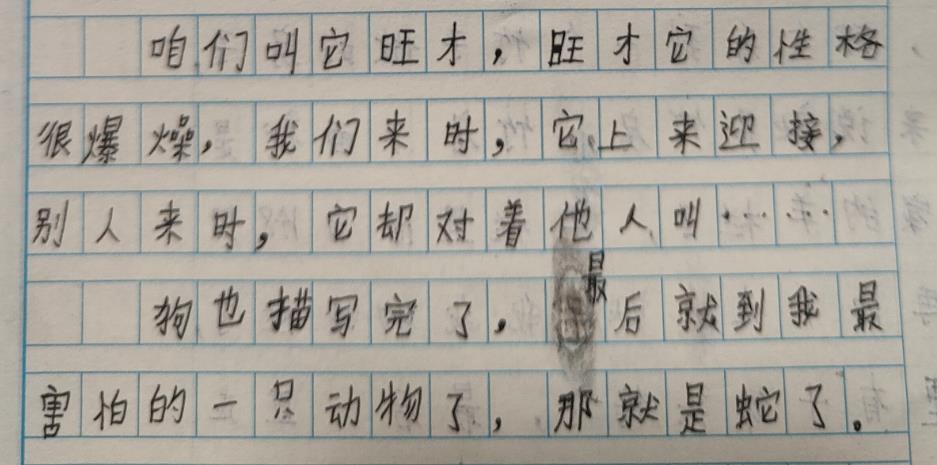 咱们叫它旺才，旺才它的性格
很爆燥，我们来时，它上来迎接，
别人来时，它却对着他人叫……
狗也描写完了，最后就到我最
害怕的一只动物了，那就是蛇了。